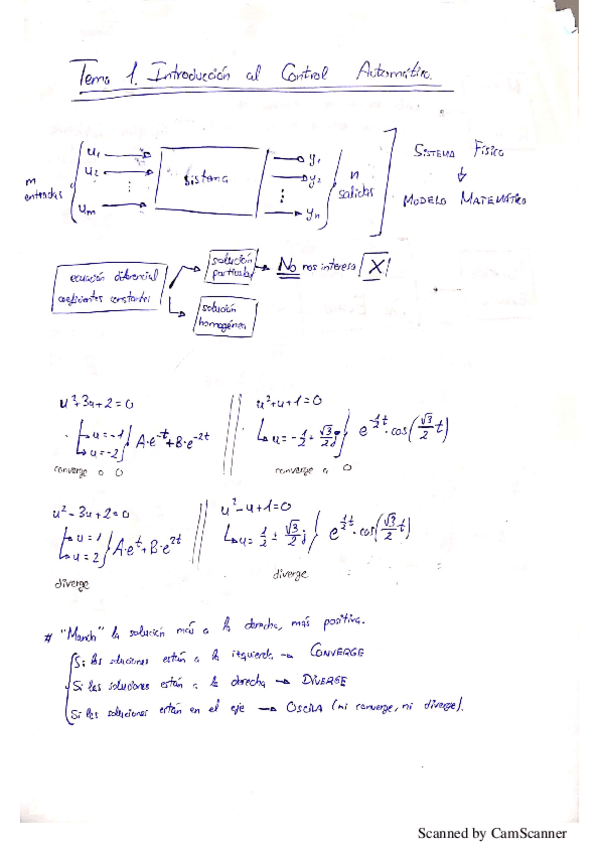 Tema 1. Introducción al Control Automático.
m entradas
u1
u2
⋮
um
Sistema
y1
y2
⋮
yn
n salidas
SISTEMA FÍSICO
↓
MODELO MATEMÁTICO
ecuación diferencial
coeficientes constantes
solución
particular
No nos interesa X
solución
homogénea
u²+3u+2=0
u=-1
u=-2
A·e^-t+B·e^-2t
converge a 0
u²+u+1=0
u=-1/2 ± √3/2 j
e^(-1/2 t)·cos(√3/2 t)
converge a 0
u²-3u+2=0
u=1
u=2
A·e^t+B·e^2t
diverge
u²-u+1=0
u= 1/2 ± √3/2 j
e^(1/2 t)·cos(√3/2 t)
diverge
# "Manda" la solución más a la derecha, más positiva.
Si las soluciones están a la izquierda → CONVERGE
Si las soluciones están a la derecha → DIVERGE
Si las soluciones están en el eje → OSCILA (ni converge, ni diverge).
Scanned by CamScanner